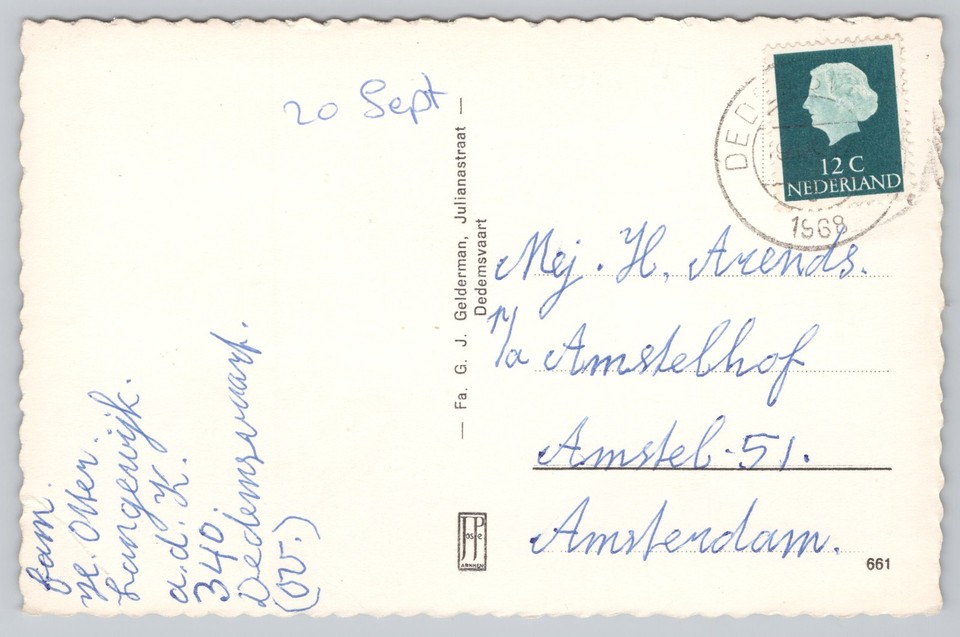 20 Sept
fam.
Je. Otter.
Langewijk.
a.d. K.
340
Dedemsvaart.
(Ov.)
— Fa. G. J. Gelderman, Julianastraat —
Dedemsvaart
12 C
NEDERLAND
DED
1968
Mej. H. Arends.
p/a Amstelhof
Amstel-51.
Amsterdam.
JosPe
ARNHEM
661